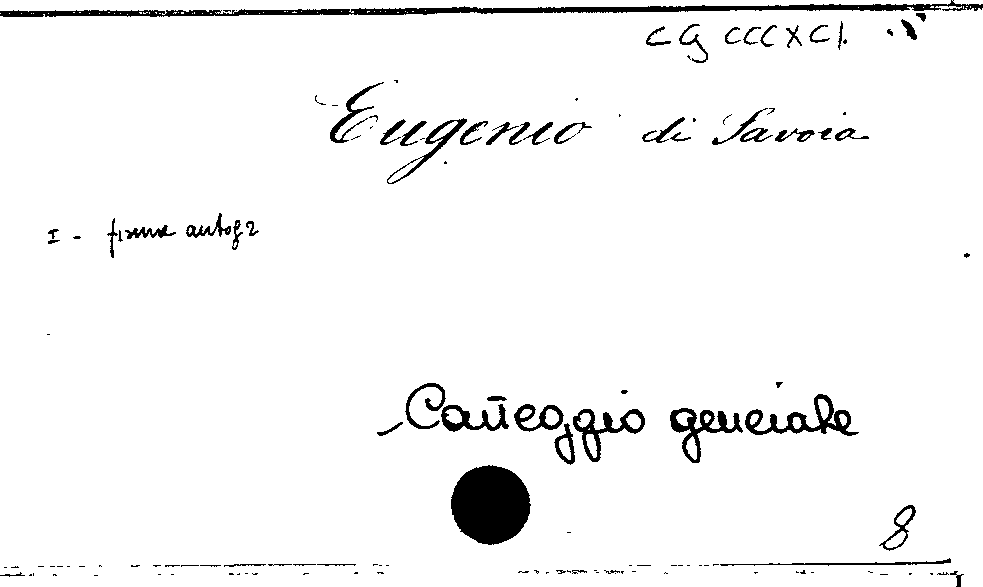 CG CCCXCI.
Eugenio di Savoia
I - firma autog
Carteggio generale
8